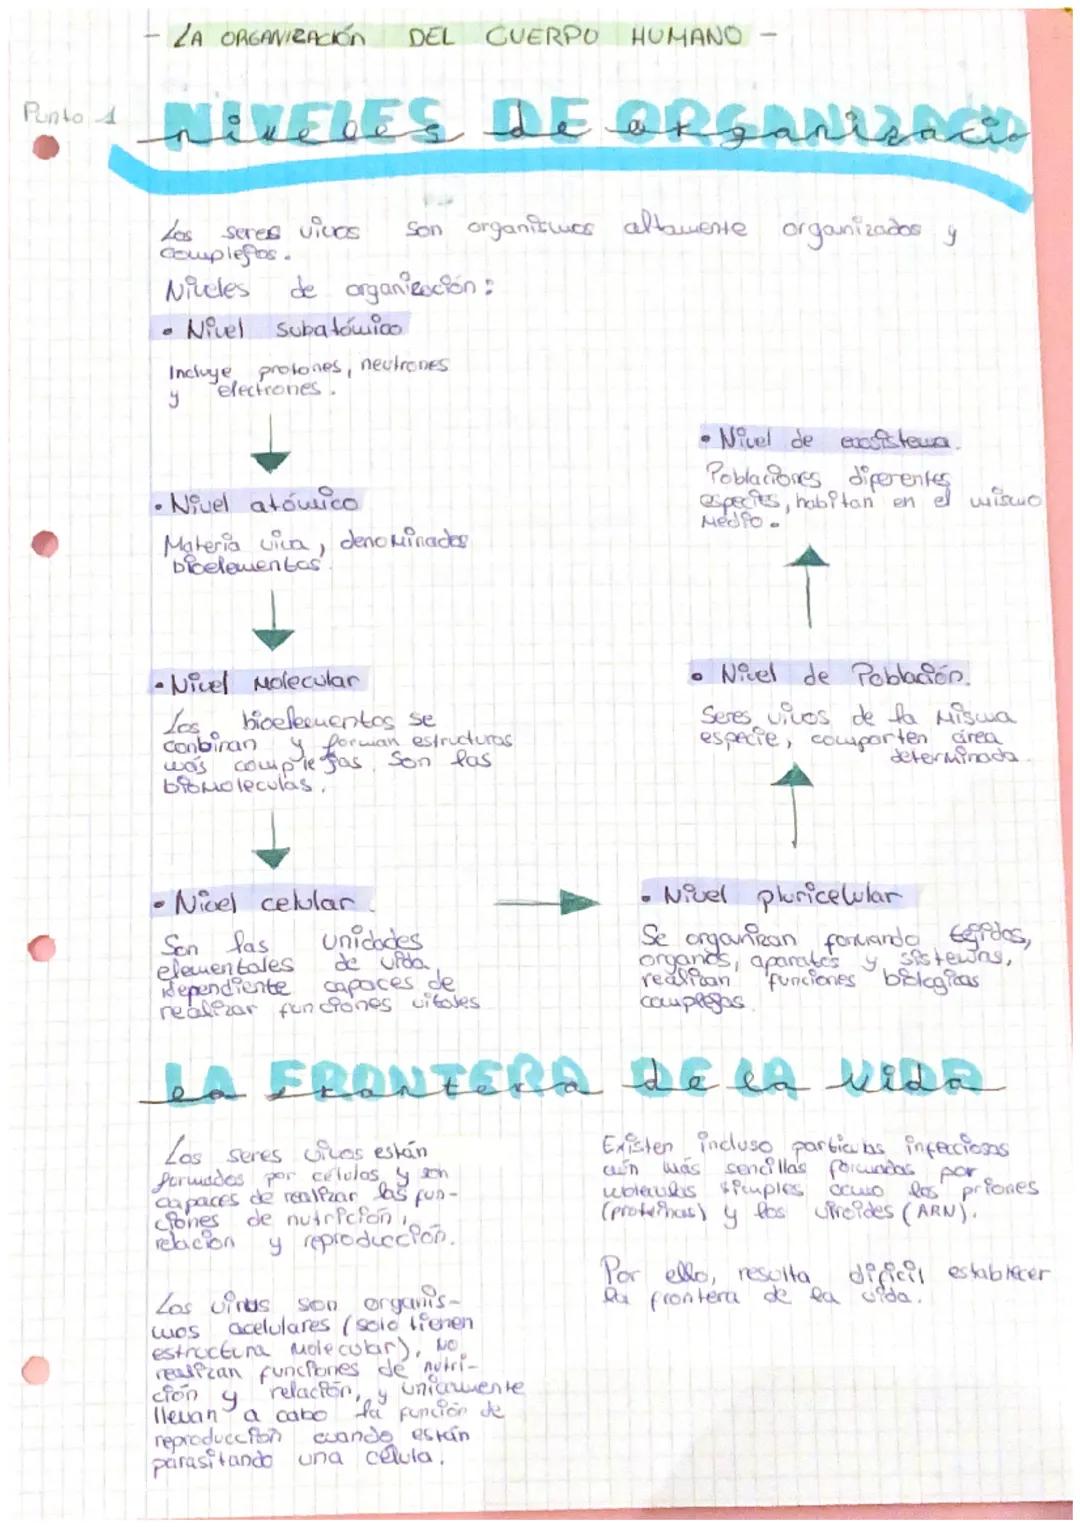 - LA ORGANIZACIÓN DEL CUERPO HUMANO -
Punto 1
NIVELES DE ORGANIZACIO
niveles de organizacio
Los seres vivos son organismos altamente organizados y
complejos.
Niveles de organización:
• Nivel subatómico
Incluye protones, neutrones
y electrones.
• Nivel atómico
Materia viva, denominados
bioelementos.
• Nivel Molecular
Los bioelementos se
conbinan y forman estructuras
más complejas. Son las
bioMoleculas.
• Nivel celular.
Son las unidades
elementales de vida
idependiente capaces de
realizar funciones vitales
• Nivel pluricelular
Se organizan formando tejidos,
organos, aparatos y sistemas,
realizan funciones biologicas
complejas.
• Nivel de Población.
Seres vivos de la Misma
especie, comparten área
determinada.
• Nivel de ecosistema.
Poblaciones diferentes
especies, habitan en el mismo
Medio.
LA FRONTERA DE LA VIDA
la frontera de la vida
Los seres vivos están
formados por células y son
capaces de realizar las fun-
ciones de nutrición,
relación y reproducción.
Los virus son organis-
mos acelulares (solo tienen
estructura Molecular), NO
realizan funciones de nutri-
ción y relación, y unicamente
llevan a cabo la función de
reproducción cuando están
parasitando una célula.
Existen incluso particulas infecciosas
aún más sencillas formadas por
moleculas simples como los priones
(proteínas) y los viroides (ARN).
Por ello, resulta difícil establecer
la frontera de la vida.